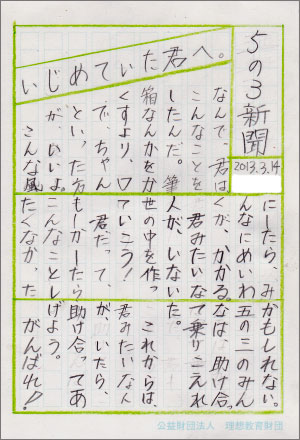 5の3新聞
2013.3.14
いじめていた君へ。
なんで、君は
こんなことを
したんだ。筆
箱なんかをか
くすより、口
で、ちゃん
といった方
が、いいよ。
こんな風
にーしたら、み
んなにめいわ
くが、かかる。
君みたいな
人が、いない
世の中を作っ
ていこう!
君だって、
もしかーしたら
こんなことし
たくなかった
かもしれない。
五の三のみん
なは、助け合っ
て乗りこえれ
た。
これからは、
君みたいな人
がいたら、
助け合ってあ
げよう。
がんばれ!
公益財団法人 理想教育財団